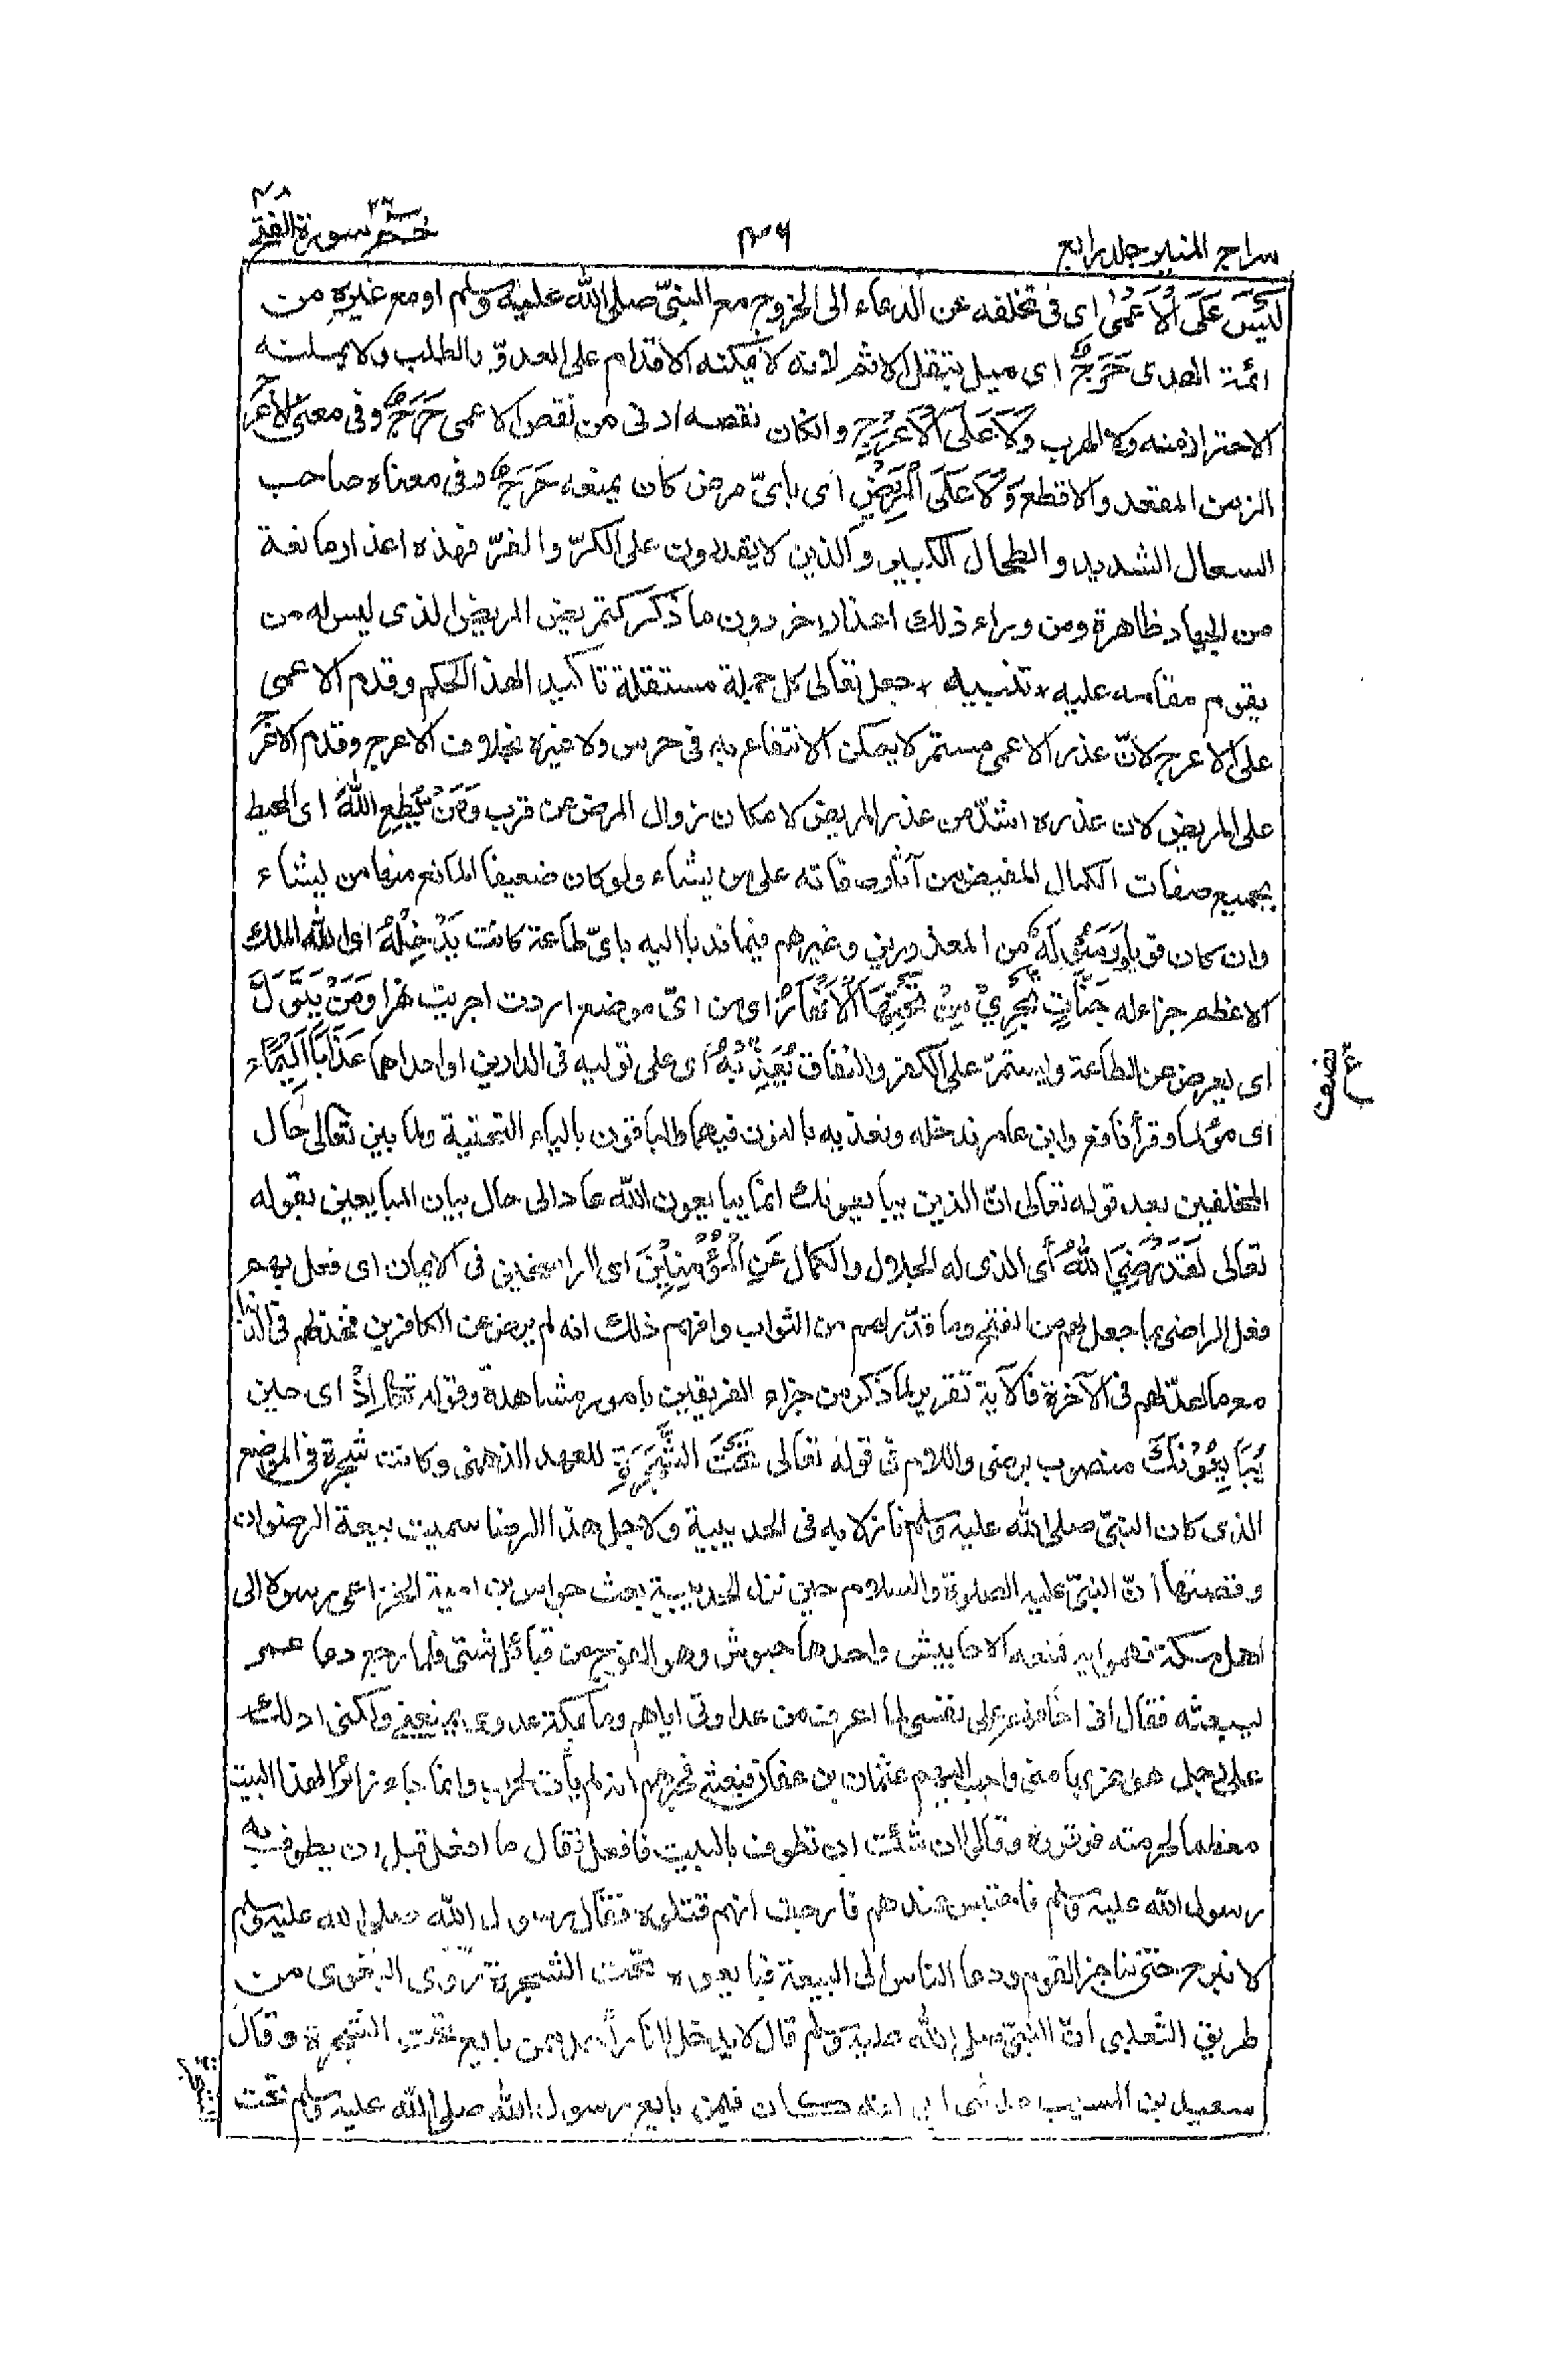 سراج المنير جلد رابع
٣٦
حم سورة الفتح
٢٦
٤٨
لَيْسَ عَلَى الْأَعْمٰى اى فى تخلفه عن الدعاء الى الخروج مع النبىّ صلى الله عليه وسلم او مع غيره من
ائمة الهدى حَرَجٌ اى ميل بثقل الاثم لانه لا يمكنه الاقدام على العدوّ والطلب ولا يمكنه
الاحتراز منه ولا الهرب وَلَا عَلَى الْأَعْرَجِ وان كان نقصه ادنى من نقص الاعمى حَرَجٌ وفى معنى الاعرج
الزمن المقعد والاقطع وَلَا عَلَى الْمَرِيْضِ اى باىّ مرض كان يمنعه حَرَجٌ وفى معناه صاحب
السعال الشديد والطحال الكبير والذين لا يقدرون على الكرّ والفرّ فهذه اعذار مانعة
من الجهاد ظاهرة ومن وراء ذلك اعذار اخر دون ما ذكر كتمريض المريض الذى ليس له من
يقوم مقامه عليه * تنبيه * جعل تعالى كل جملة مستقلة تاكيدا لهذا الحكم وقدم الاعمى
على الاعرج لانّ عذر الاعمى مستمر لا يمكن الانتفاع به فى حرس ولا غيره بخلاف الاعرج وقدم الاعرج
على المريض لان عذره اشدّ من عذر المريض لامكان زوال المرض عن قرب وَمَنْ يُّطِعِ اللّٰهَ اى المحيط
بجميع صفات الكمال المفيض من آثار صفاته على من يشاء ولو كان ضعيفا المانع منها من يشاء
وان كان قويا وَرَسُوْلَهٗ من المعذورين وغيرهم فيما ندبا اليه باىّ طاعة كانت يُدْخِلْهُ اى الله الملك
الاعظم جزاء له جَنّٰتٍ تَجْرِىْ مِنْ تَحْتِهَا الْأَنْهَارُ اى من اىّ موضع اردت اجريت نهرا وَمَنْ يَّتَوَلَّ
اى يعرض عن الطاعة ويستمرّ على الكفر والنفاق يُعَذِّبْهُ اى على توليه فى الدارين او احداهما عَذَابًا اَلِيْمًا
اى مؤلما وقرأ نافع وابن عامر ندخله ونعذبه بالنون فيهما والباقون بالياء التحتية ولما بين تعالى حال
المخلفين بعد قوله تعالى انّ الذين يبايعونك انما يبايعون الله عاد الى حال بيان المبايعين بقوله
تعالى لَقَدْ رَضِىَ اللّٰهُ أى الذى له الجلال والكمال عَنِ الْمُؤْمِنِيْنَ اى الراسخين فى الايمان اى فعل بهم
فعل الراضى بما جعل لهم من الفتح وما قدّر لهم من الثواب وافهم ذلك انه لم يرض عن الكافرين فخذلهم فى الدنيا
مع ما اعدّ لهم فى الآخرة فالآية تقرير لما ذكر من جزاء الفريقين بامور مشاهدة وقوله تعالى اِذْ اى حين
يُبَايِعُوْنَكَ منصوب برضى واللام فى قوله تعالى تَحْتَ الشَّجَرَةِ للعهد الذهنى وكانت شجرة فى الموضع
الذى كان النبىّ صلى الله عليه وسلم نازلا به فى الحديبية ولاجل هذا الرضا سميت بيعة الرضوان
وقصتها أنّ النبىّ عليه الصلوة والسلام حين نزل الحديبية بعث جواس بن امية الخزاعى رسولا الى
اهل مكة فهموا به فمنعه الاحابيش واحدها حبوش وهو الفوج من قبائل شتى فلما رجع دعا عمر
ليبعثه فقال انى اخافهم على نفسى لما اعرف من عداوتى اياهم وما بمكة عدوى يمنعنى ولكنى ادلك
على رجل هو اعز بها منى واحب اليهم عثمان بن عفان فبعثه فخبرهم انه لم يأت لحرب وانما جاء زائرا لهذا البيت
معظما لحرمته فوقروه وقالوا ان شئت ان تطوف بالبيت فافعل فقال ما افعل قبل ان يطوف به
رسول الله عليه وسلم فاحتبس عندهم فارجف انهم قتلوه فقال رسول الله صلى الله عليه وسلم
لا نبرح حتى نناجز القوم ودعا الناس الى البيعة فبايعوه تحت الشجرة روى البغوى من
طريق الثعلبى أنّ النبىّ صلى الله عليه وسلم قال لا يدخل النار احد ممن بايع تحت الشجرة وقال
سعيد بن المسيب حدثنى ابى انه كان فيمن بايع رسول الله صلى الله عليه وسلم تحت